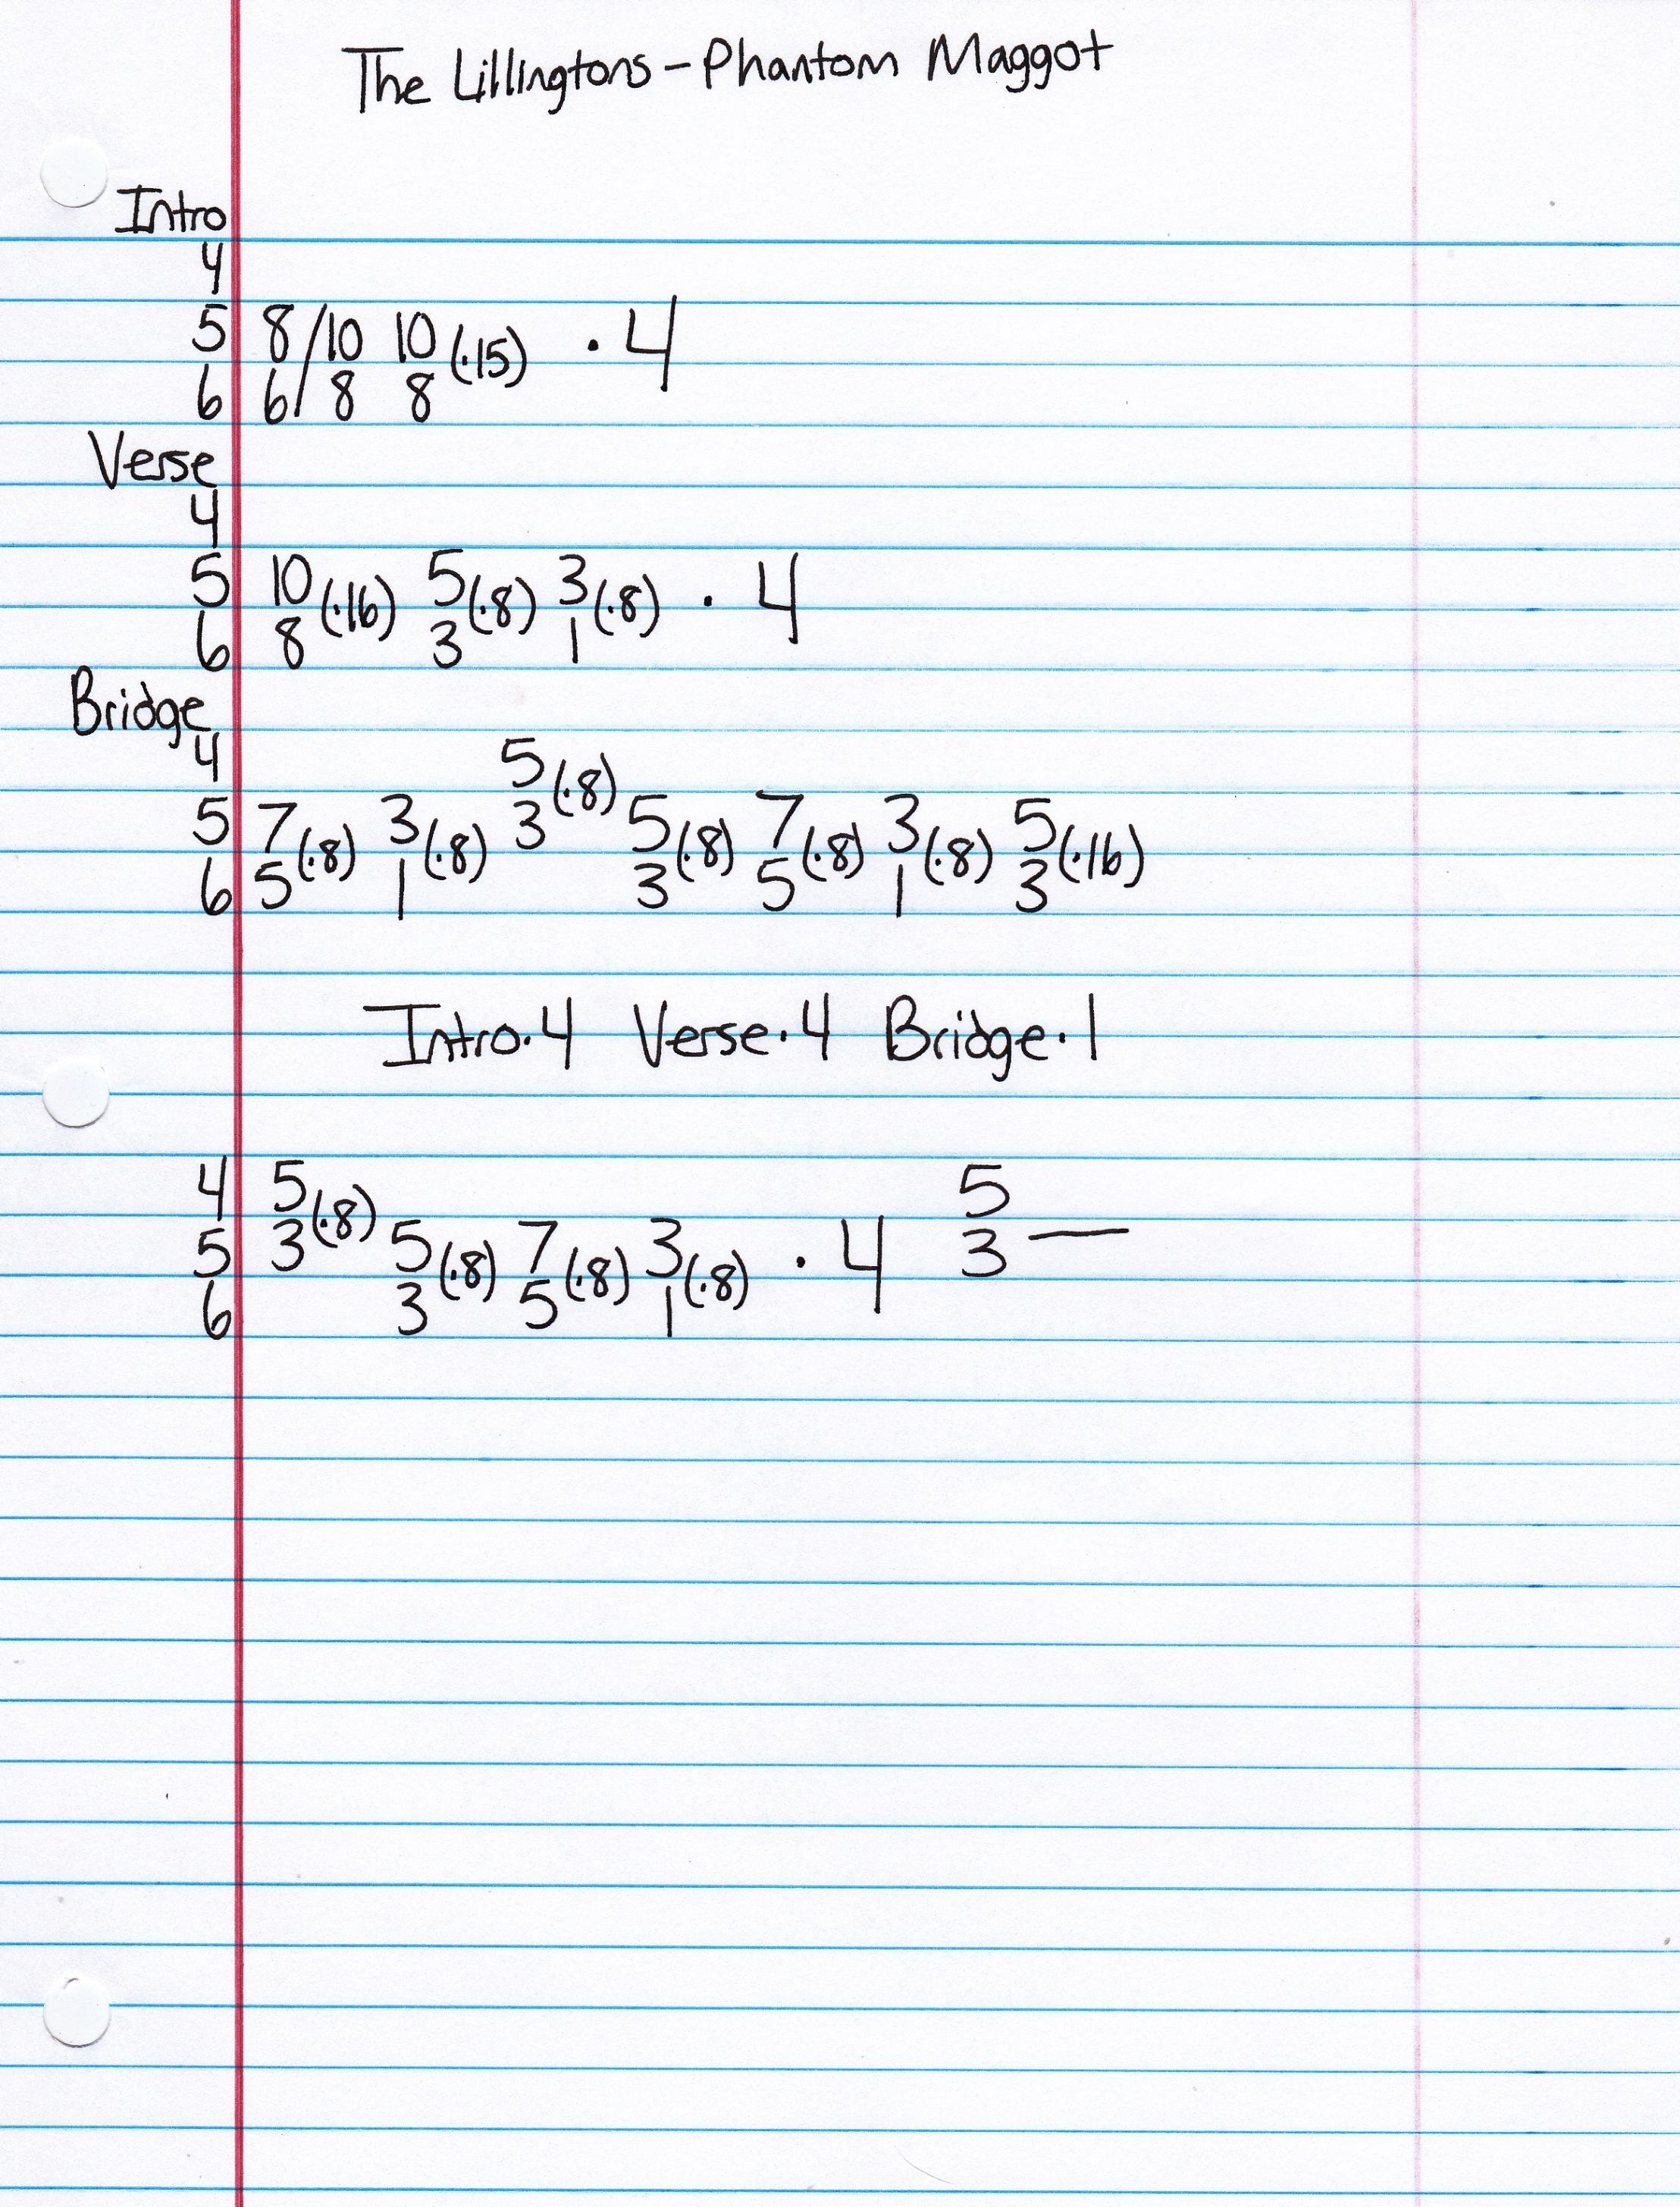 The Lillingtons - Phantom Maggot
Intro
4
5 8/10 10 (·15) · 4
6 6/ 8 8
Verse
4
5 10 (·16) 5 (·8) 3 (·8) · 4
6 8 3 1
Bridge
4 5 (·8)
5 7 (·8) 3 (·8) 3 5 (·8) 7 (·8) 3 (·8) 5 (·16)
6 5 1 3 5 1 3
Intro·4 Verse·4 Bridge·1
4 5 (·8) 5
5 3 5 (·8) 7 (·8) 3 (·8) · 4 3 —
6 3 5 1